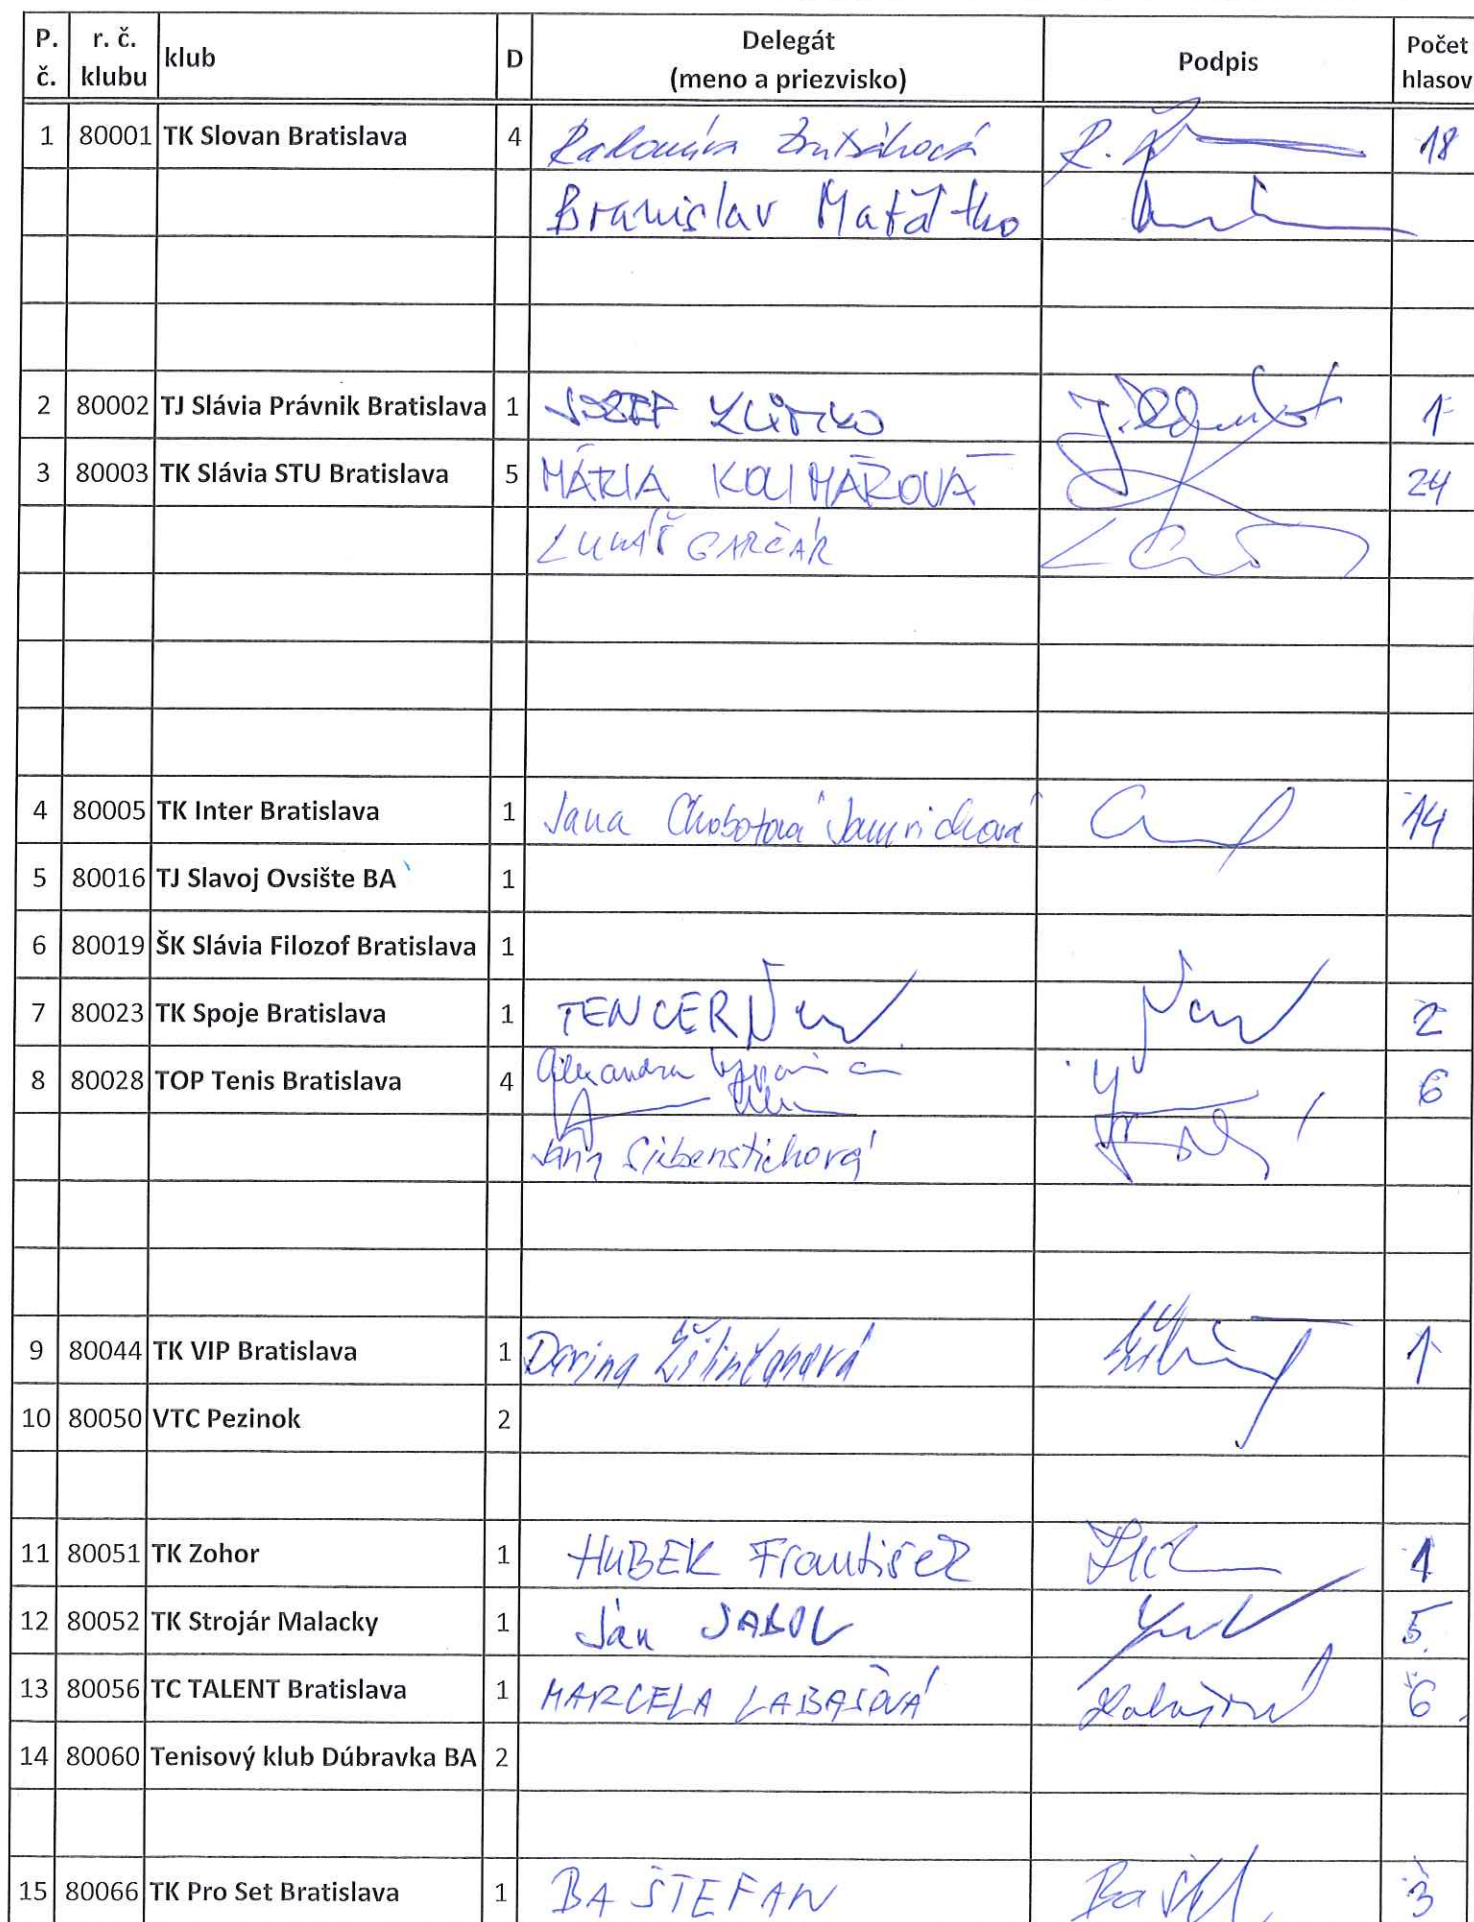 P. č. r. č. klubu klub D Delegát (meno a priezvisko) Podpis Počet hlasov
1 80001 TK Slovan Bratislava 4 18
Branislav Maťátko
2 80002 TJ Slávia Právnik Bratislava 1 JOZEF 1
3 80003 TK Slávia STU Bratislava 5 MÁRIA KOLIMÁROVÁ 24
LUKÁŠ GARČÁR
4 80005 TK Inter Bratislava 1 Jana Chobotová Jamrichová 14
5 80016 TJ Slavoj Ovsište BA 1
6 80019 ŠK Slávia Filozof Bratislava 1
7 80023 TK Spoje Bratislava 1 TENCER 2
8 80028 TOP Tenis Bratislava 4 Alexandra 6
Jana Siebenstichová
9 80044 TK VIP Bratislava 1 Darina Žilinčanová 1
10 80050 VTC Pezinok 2
11 80051 TK Zohor 1 HUBEK František 1
12 80052 TK Strojár Malacky 1 Ján 5
13 80056 TC TALENT Bratislava 1 MARCELA LABAŠOVÁ 6
14 80060 Tenisový klub Dúbravka BA 2
15 80066 TK Pro Set Bratislava 1 BA ŠTEFAN 3